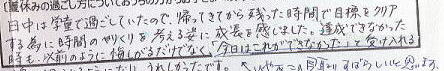 夏休みの過ごし方について
日中は学童で過ごしていたので、帰ってきてから残った時間で目標をクリア
する為に時間のやりくりを考える姿に成長を感じました。達成できなかった
時も、以前のように悔しがるだけでなく、「今日はこれができなかった」って受け入れる
うれしかったです。